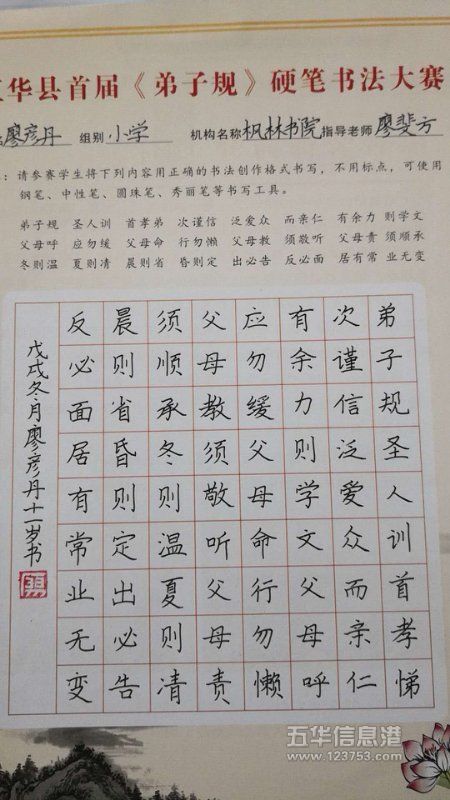 华县首届《弟子规》硬笔书法大赛
廖彦丹 组别 小学 机构名称 枫林书院 指导老师 廖斐方
：请参赛学生将下列内容用正确的书法创作格式书写，不用标点，可使用
钢笔、中性笔、圆珠笔、秀丽笔等书写工具。
弟子规 圣人训 首孝弟 次谨信 泛爱众 而亲仁 有余力 则学文
父母呼 应勿缓 父母命 行勿懒 父母教 须敬听 父母责 须顺承
冬则温 夏则凊 晨则省 昏则定 出必告 反必面 居有常 业无变
弟子规圣人训首孝悌
次谨信泛爱众而亲仁
有余力则学文父母呼
应勿缓父母命行勿懒
父母教须敬听父母责
须顺承冬则温夏则凊
晨则省昏则定出必告
反必面居有常业无变
戊戌冬月廖彦丹十一岁书
五华信息港
www.123753.com